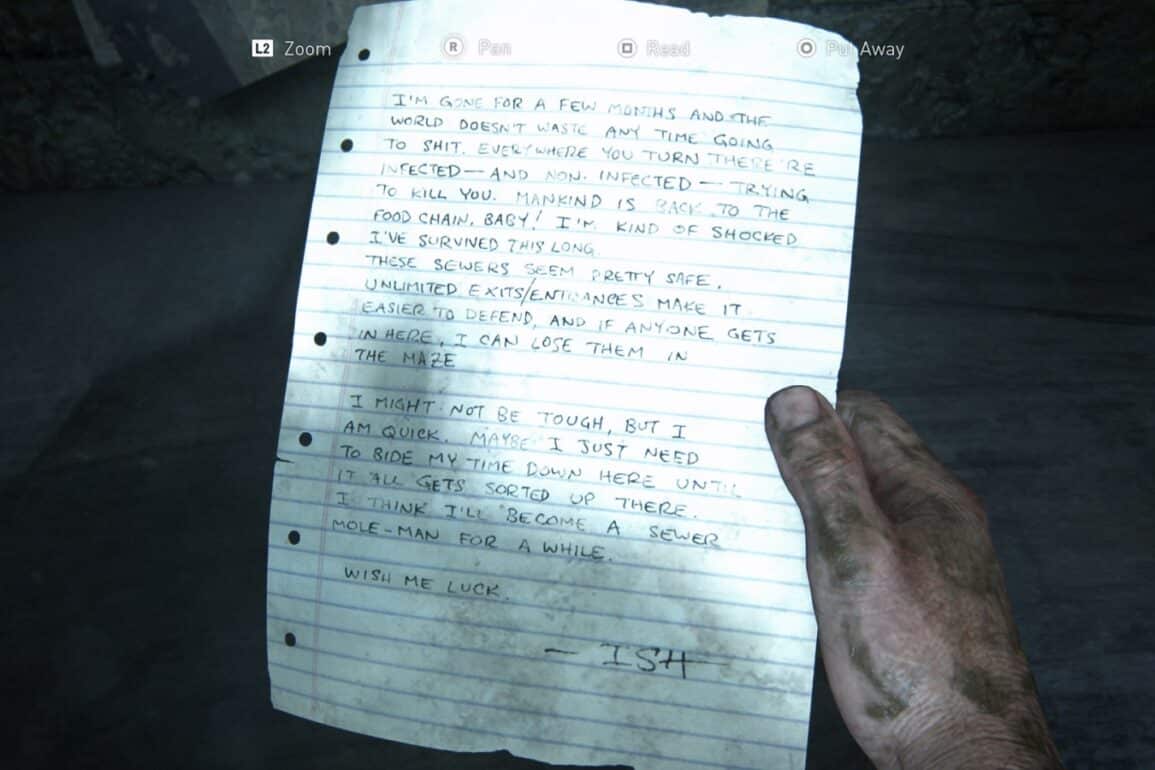 L2 Zoom R Pan Read Put Away
I'M GONE FOR A FEW MONTHS AND THE
WORLD DOESN'T WASTE ANY TIME GOING
TO SHIT. EVERYWHERE YOU TURN THERE'RE
INFECTED — AND NON-INFECTED — TRYING
TO KILL YOU. MANKIND IS BACK TO THE
FOOD CHAIN, BABY! I'M KIND OF SHOCKED
I'VE SURVIVED THIS LONG.
THESE SEWERS SEEM PRETTY SAFE.
UNLIMITED EXITS/ENTRANCES MAKE IT
EASIER TO DEFEND, AND IF ANYONE GETS
IN HERE, I CAN LOSE THEM IN
THE MAZE
I MIGHT NOT BE TOUGH, BUT I
AM QUICK. MAYBE I JUST NEED
TO BIDE MY TIME DOWN HERE UNTIL
IT ALL GETS SORTED UP THERE.
I THINK I'LL BECOME A SEWER
MOLE-MAN FOR A WHILE.
WISH ME LUCK.
— ISH